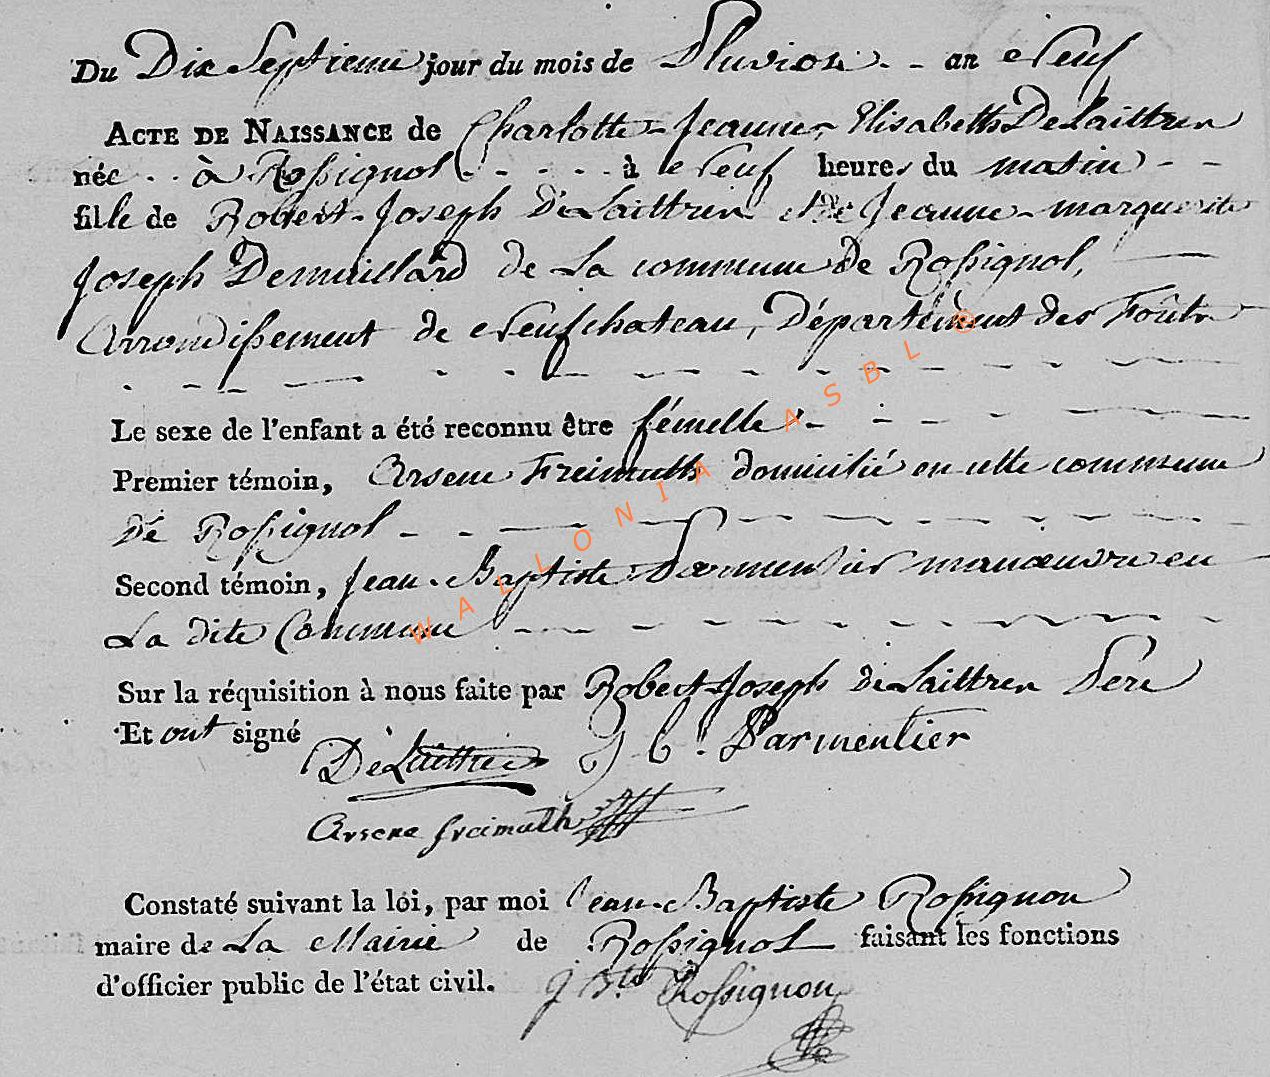 Du Dix Septieme jour du mois de Pluviose - - an Neuf
ACTE DE NAISSANCE de Charlotte - Jeanne - Elisabeth DeLaittren
née . . à Rossignol . - . . . . à Neuf heures du matin - -
fille de Robert - Joseph DeLaittren et de Jeanne - marguerite
Joseph Demaillard de La commune de Rossignol,
Arrondissement de Neufchateau, Département des Forêts
Le sexe de l'enfant a été reconnu être fémelle . -
Premier témoin, Arsene Freimuth domicilié en cette commune
De Rossignol - -
Second témoin, Jean - Baptiste Parmentier manœuvre en
La dite Commune
Sur la réquisition à nous faite par Robert Joseph de Laittren Pere
Et ont signé
DeLaittre J b. Parmentier
Arsene freimuth
Constaté suivant la loi, par moi Jean - Baptiste Rossignon
maire de La Mairie de Rossignol faisant les fonctions
d'officier public de l'état civil. J Bte Rossignon
WALLONIA ASBL ©